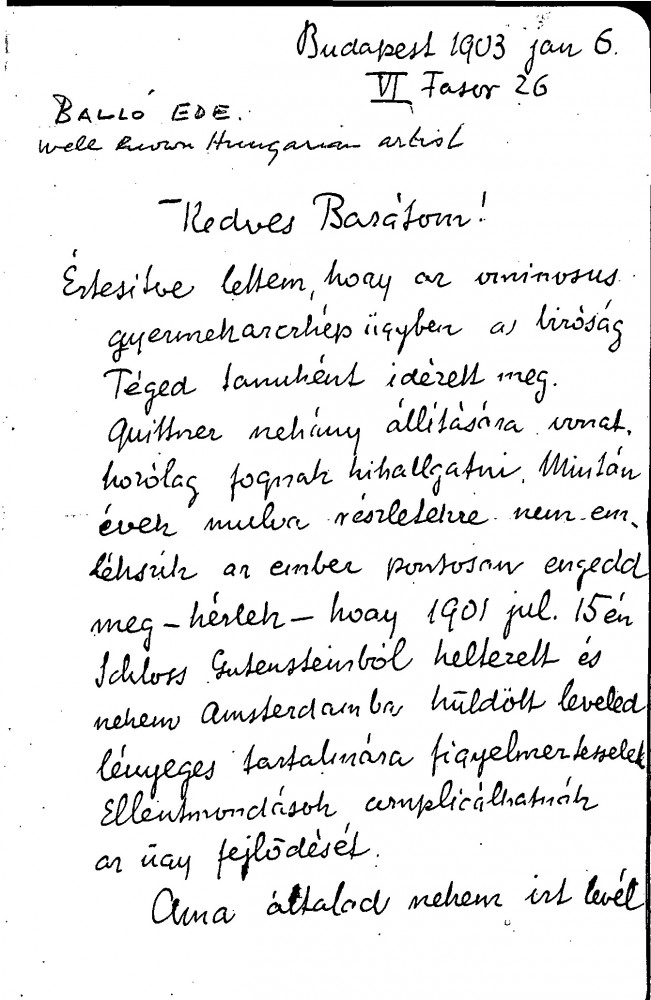 Budapest 1903 jan 6.
VI Fasor 26
BALLÓ EDE.
well known Hungarian artist
Kedves Barátom!
Értesitve lettem, hogy az ominosus
gyermekarczkép ügyben a biróság
Téged tanuként idézett meg.
Quittner nehány állitására vonat-
kozólag fognak kihallgatni. Miután
évek mulva részletekre nem em-
lékszik az ember pontosan engedd
meg – kérlek – hogy 1901 jul. 15én
Schloss Gutensteinból keltezett és
nekem Amsterdamba küldött leveled
lényeges tartalmára figyelmeztesselek
Ellentmondások complicálhatnák
az ügy fejlődését.
Ama általad nekem irt levél